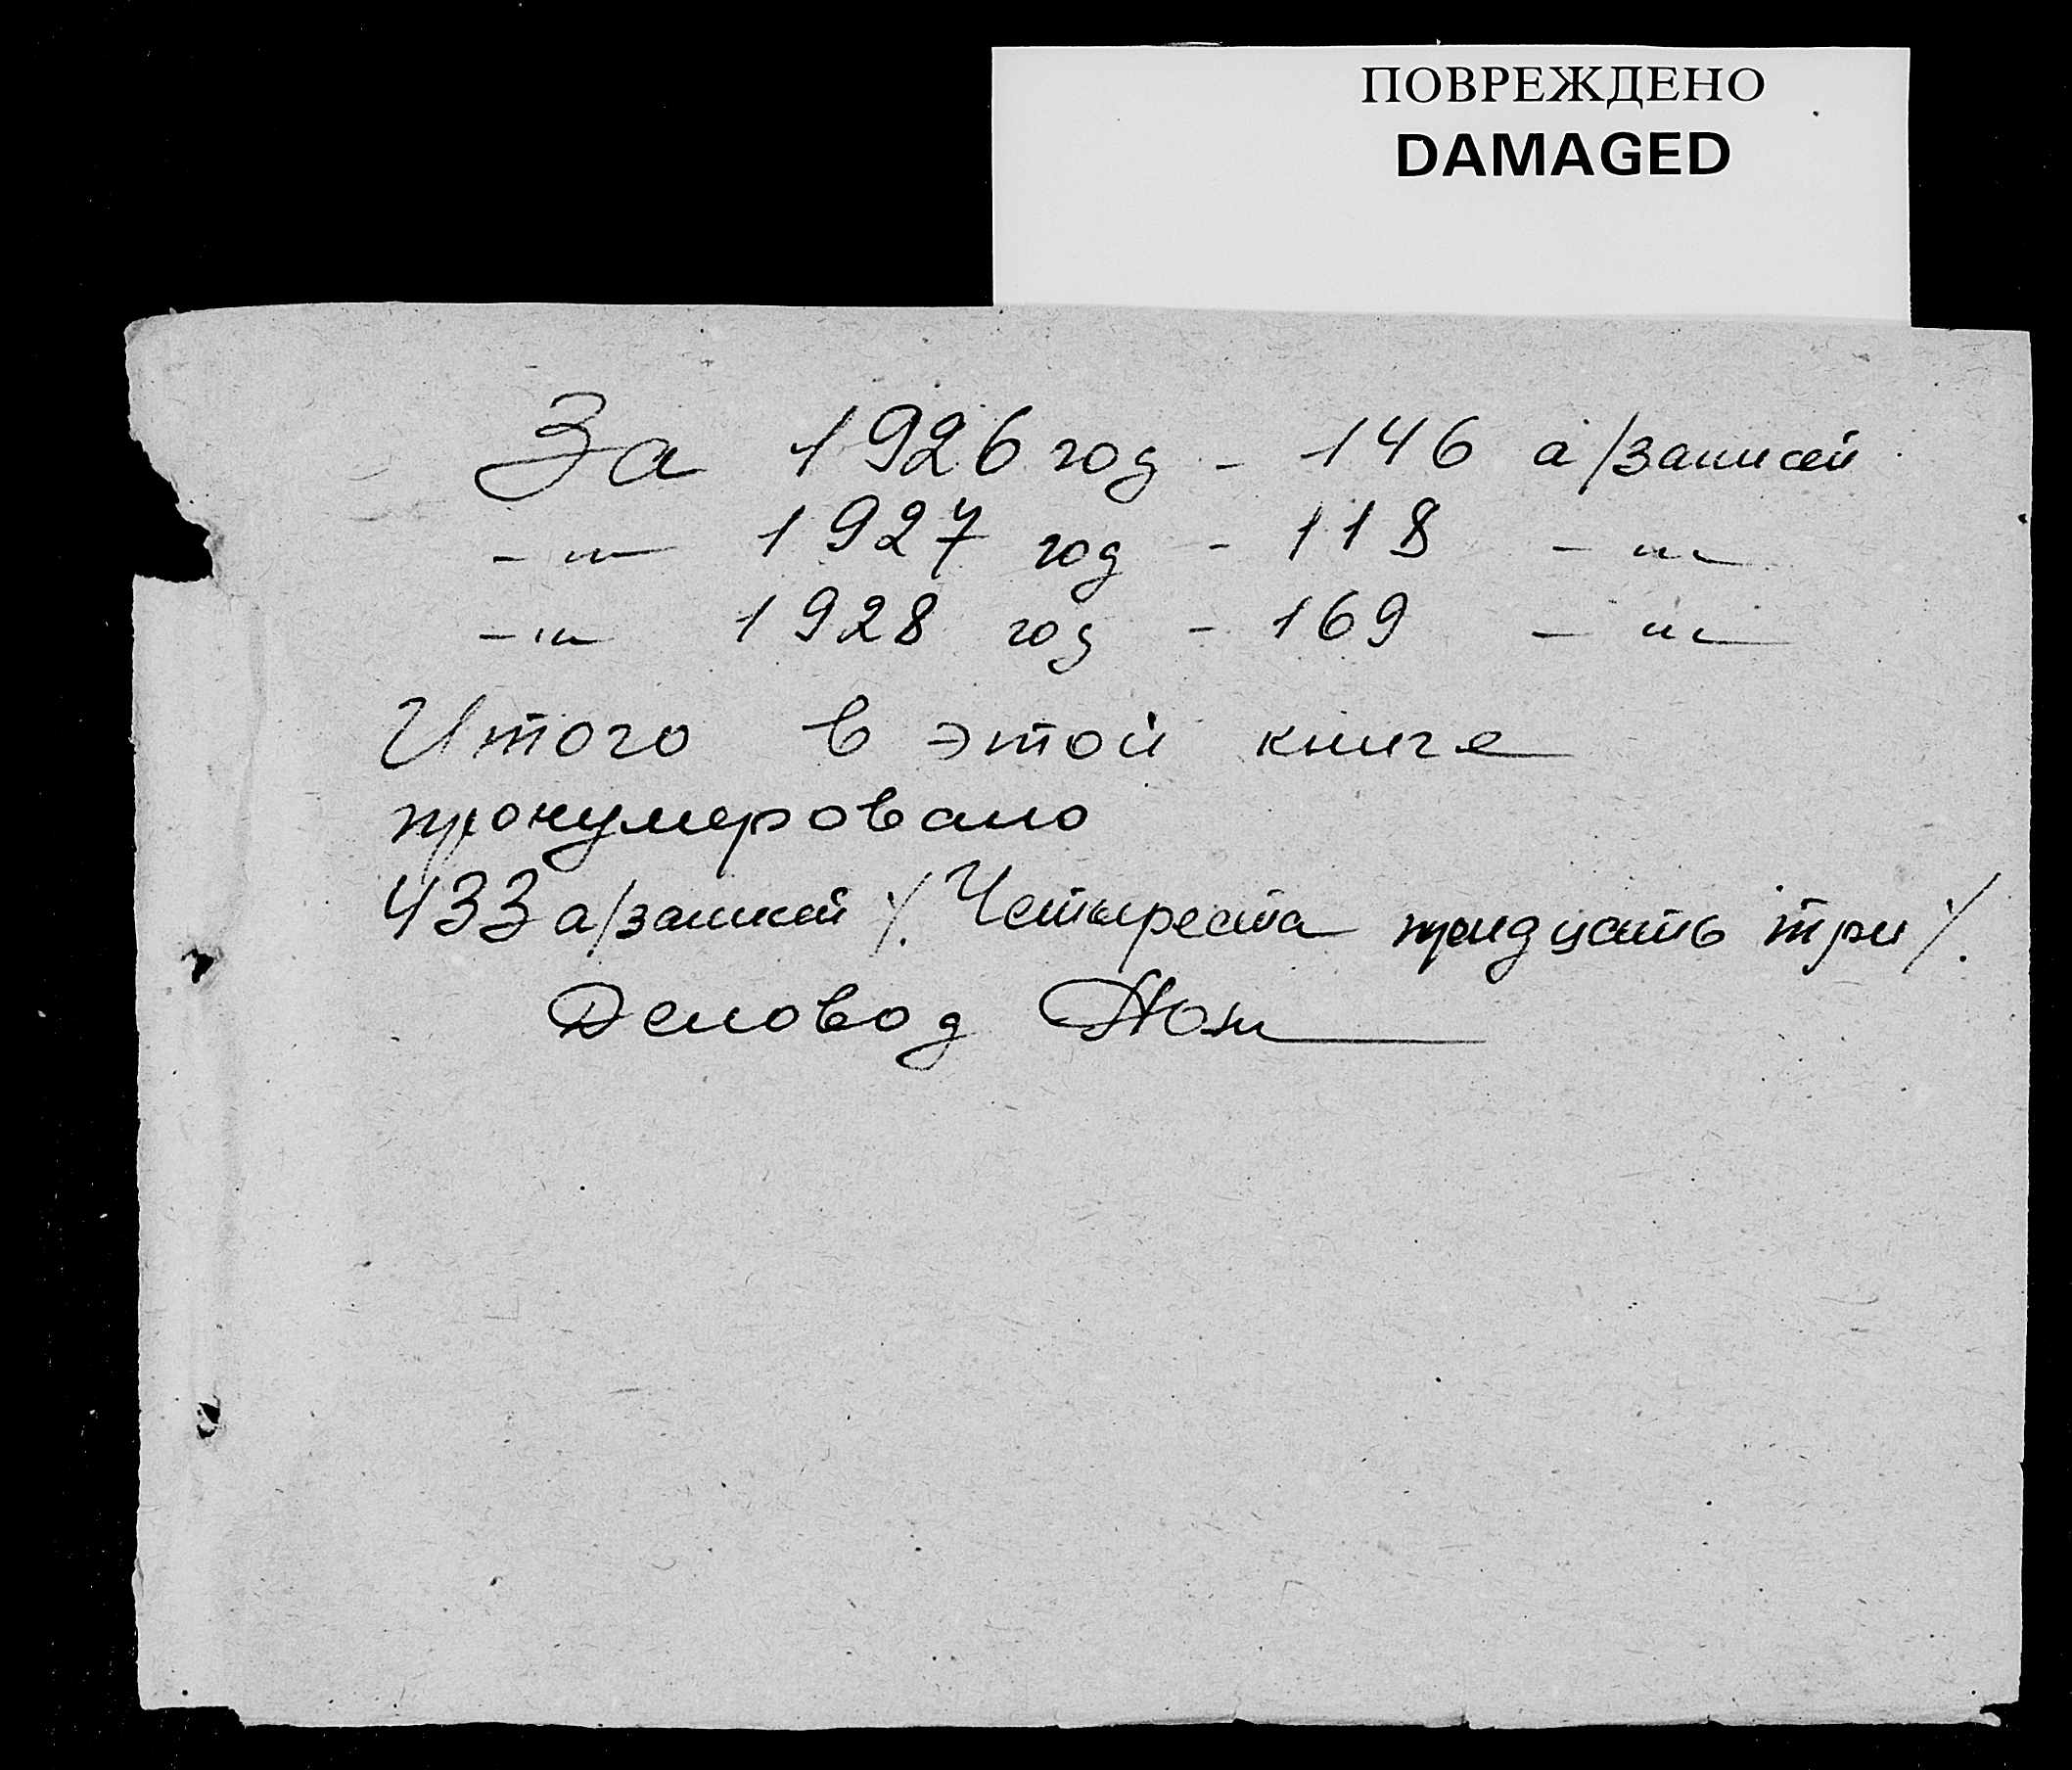 ПОВРЕЖДЕНО
DAMAGED
За 1926 год - 146 а/записей
-"- 1927 год - 118 -"-
-"- 1928 год - 169 -"-
Итого в этой книге
пронумеровано
433 а/записей /. Четыреста тридцать три /.
Деловод